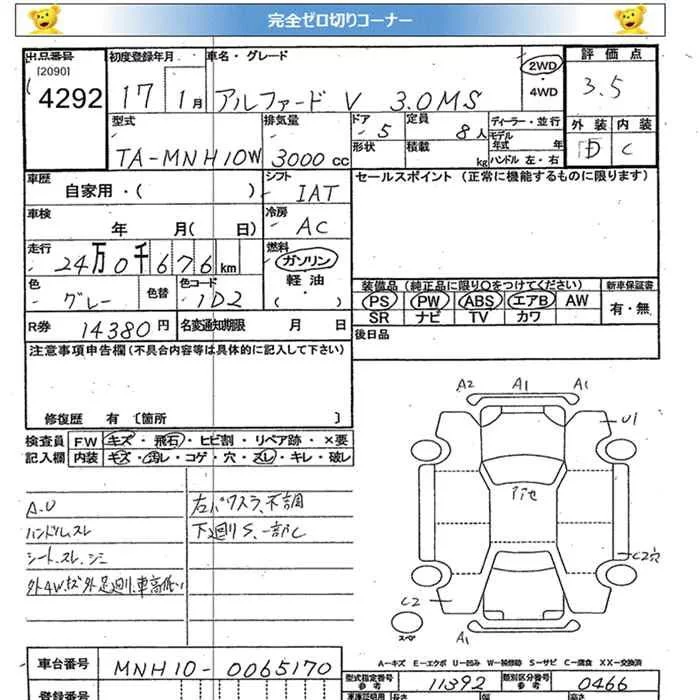 完全ゼロ切りコーナー
出品番号
[2090]
4292
初度登録年月
17 1月
車名・グレード
アルファード V 3.0MS
2WD
4WD
評価点
3.5
外装 内装
D C
型式
TA-MNH10W
排気量
3000 cc
ドア
5
形状
定員
8人
積載
kg
ディーラー・並行
モデル
年式 年
ハンドル 左・右
車歴
自家用・( )
シフト
IAT
セールスポイント (正常に機能するものに限ります)
車検
年 月( 日)
冷房
AC
走行
24万0千676km
燃料
ガソリン
軽油
( )
色
グレー
色替
色コード
1D2
装備品(純正品に限り○をつけてください)
新車保証書
PS PW ABS エアB AW
SR ナビ TV カワ
有・無
R券 14380円
名変通知期限 月 日
後日品
注意事項申告欄(不具合内容等は具体的に記入して下さい)
修復歴 有 〔箇所 〕
検査員
記入欄
FW キズ・飛石・ヒビ割・リペア跡・×要
内装 キズ・汚レ・コゲ・穴・スレ・キレ・破レ
A.U
ハンドルスレ
シートスレ、シミ
外4W、キズ 外足廻り、車高低い
左パワスラ、不調
下廻りS、一部C
A2 A1 A1
U1
C2穴
C2
A1
スペア
A-キズ E-エクボ U-凹み W-補修跡 S-サビ C-腐食 XX-交換済
車台番号
MNH10-0065170
型式指定番号
参考
11392
類別区分番号
参考
0466
登録番号
車庫証明用
長さ
幅
高さ